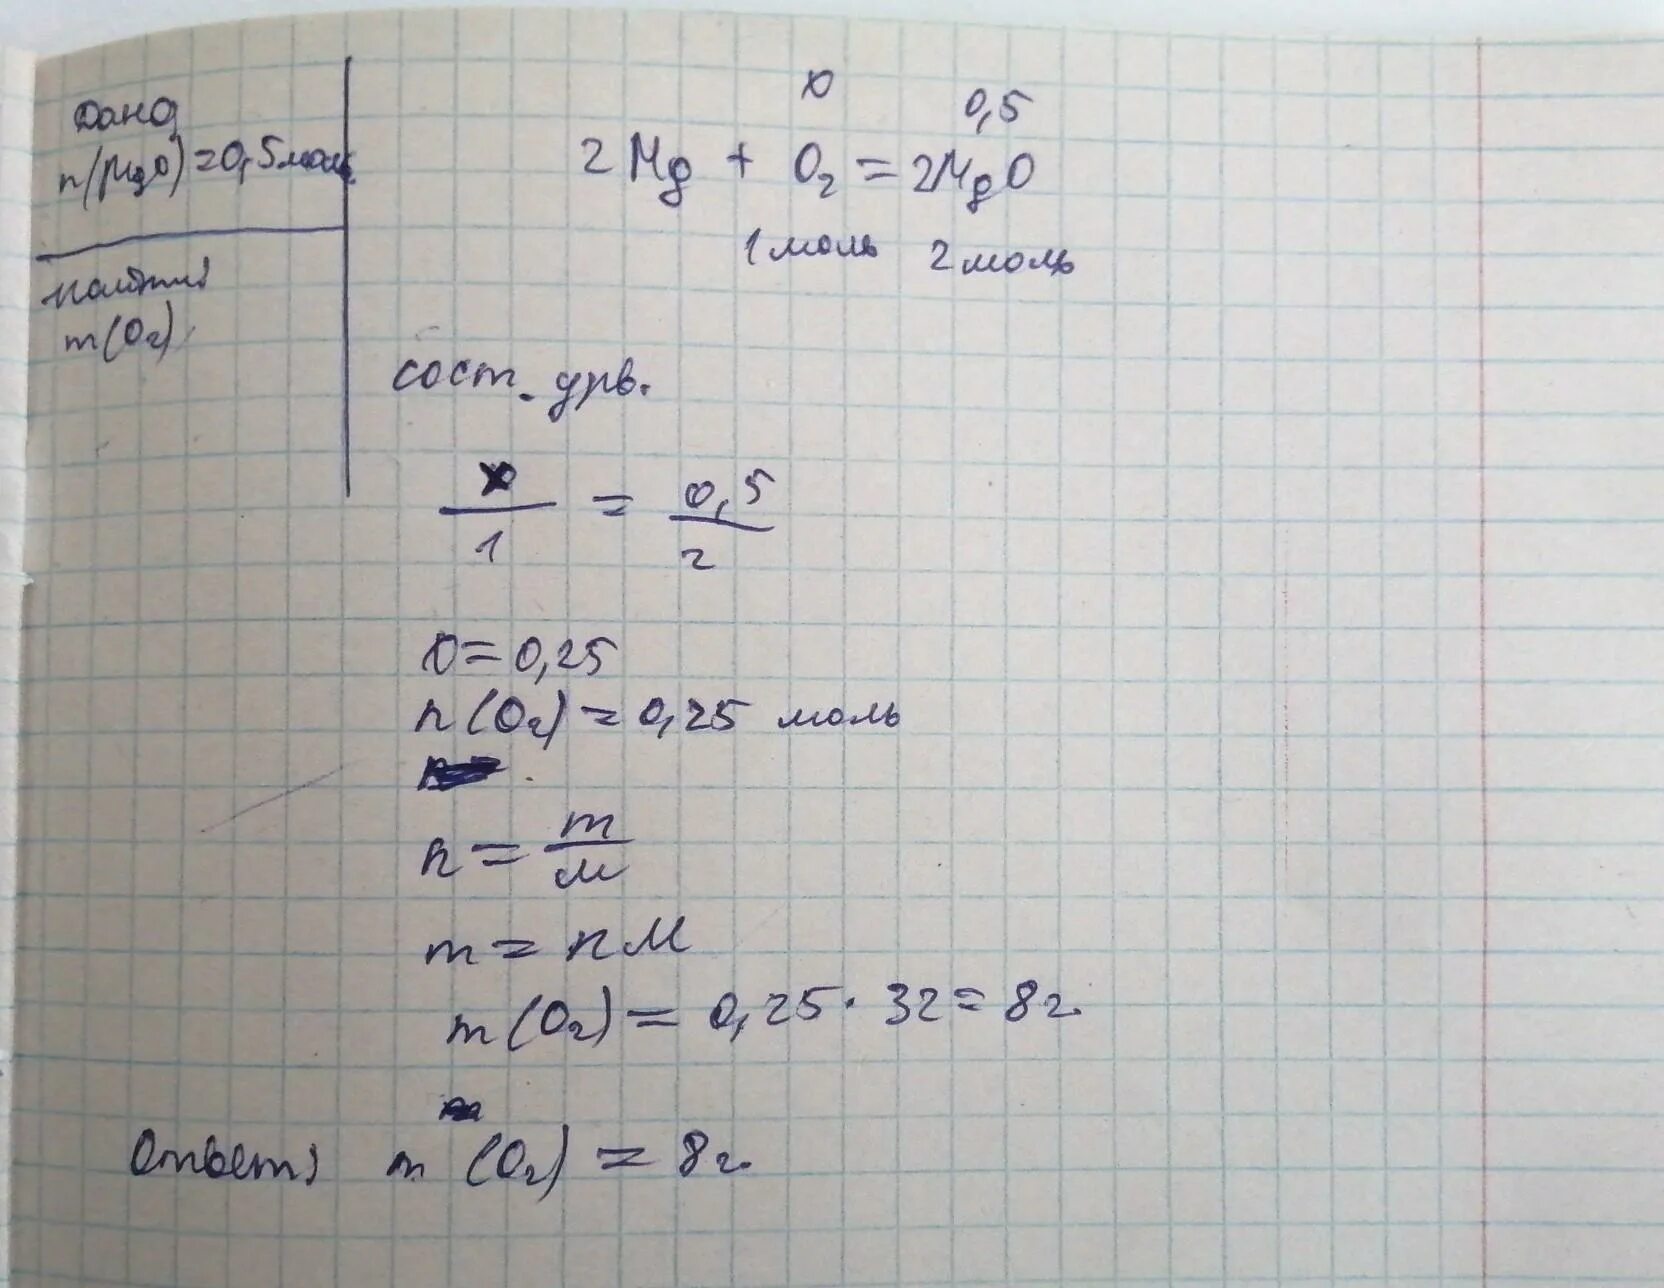 Дано:
n(MgO)=0,5моль
Найти:
m(O₂)
x 0,5
2Mg + O₂ = 2MgO
1моль 2моль
сост. урв.
x/1 = 0,5/2
x=0,25
n(O₂)=0,25 моль
n=m/M
m=nM
m(O₂)=0,25·32=8г.
Ответ: m(O₂)=8г.